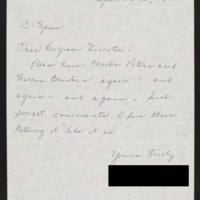 C-Span
Dear Program Director:
Please have Charles Peters and
Warren Brookes again - and
again - and again. Such
smart comments. I love their
telling it "like it is."
Yours truly,